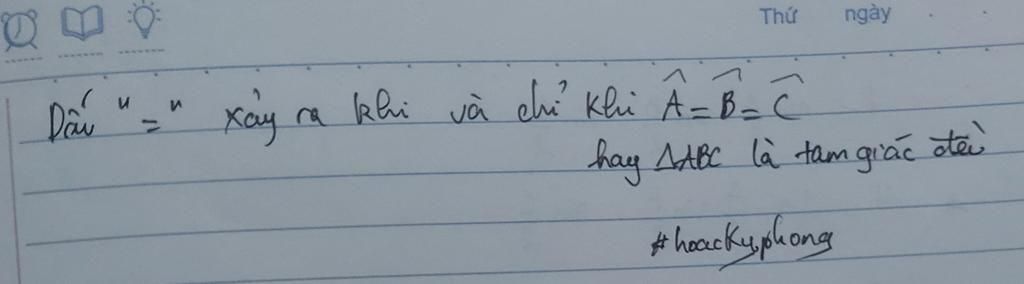 Thứ ngày
Dấu "=" xảy ra khi và chỉ khi Â = B̂ = Ĉ
hay ΔABC là tam giác đều
#hoackyphong